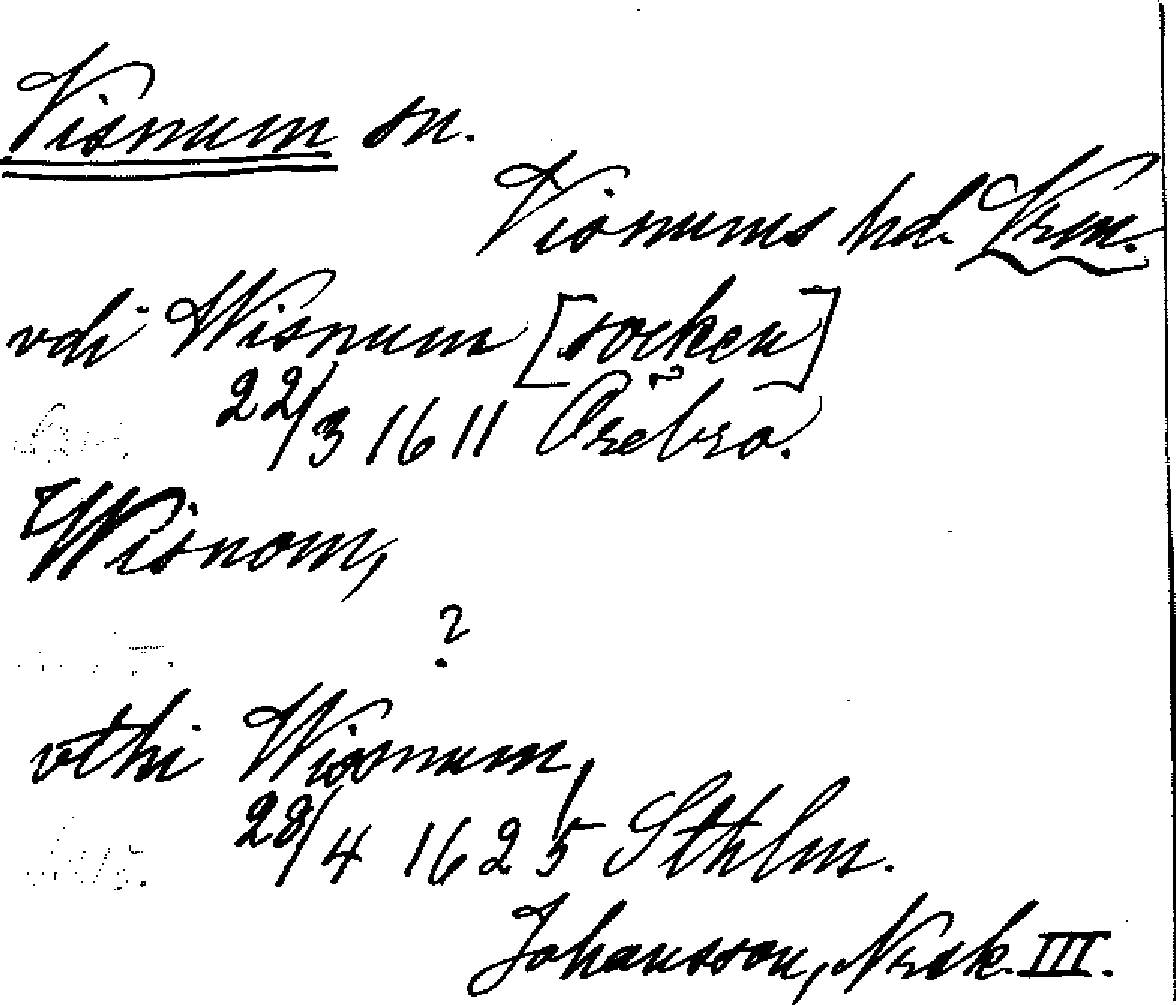 Visnum sn.
Visnums hd. Vrm.
vdi Wisnum [socken]
22/3 1611 Örebro.
Wisnom,
?
vthi Wisnum,
28/4 1625 Sthlm.
Johansson, Nrsk. III.